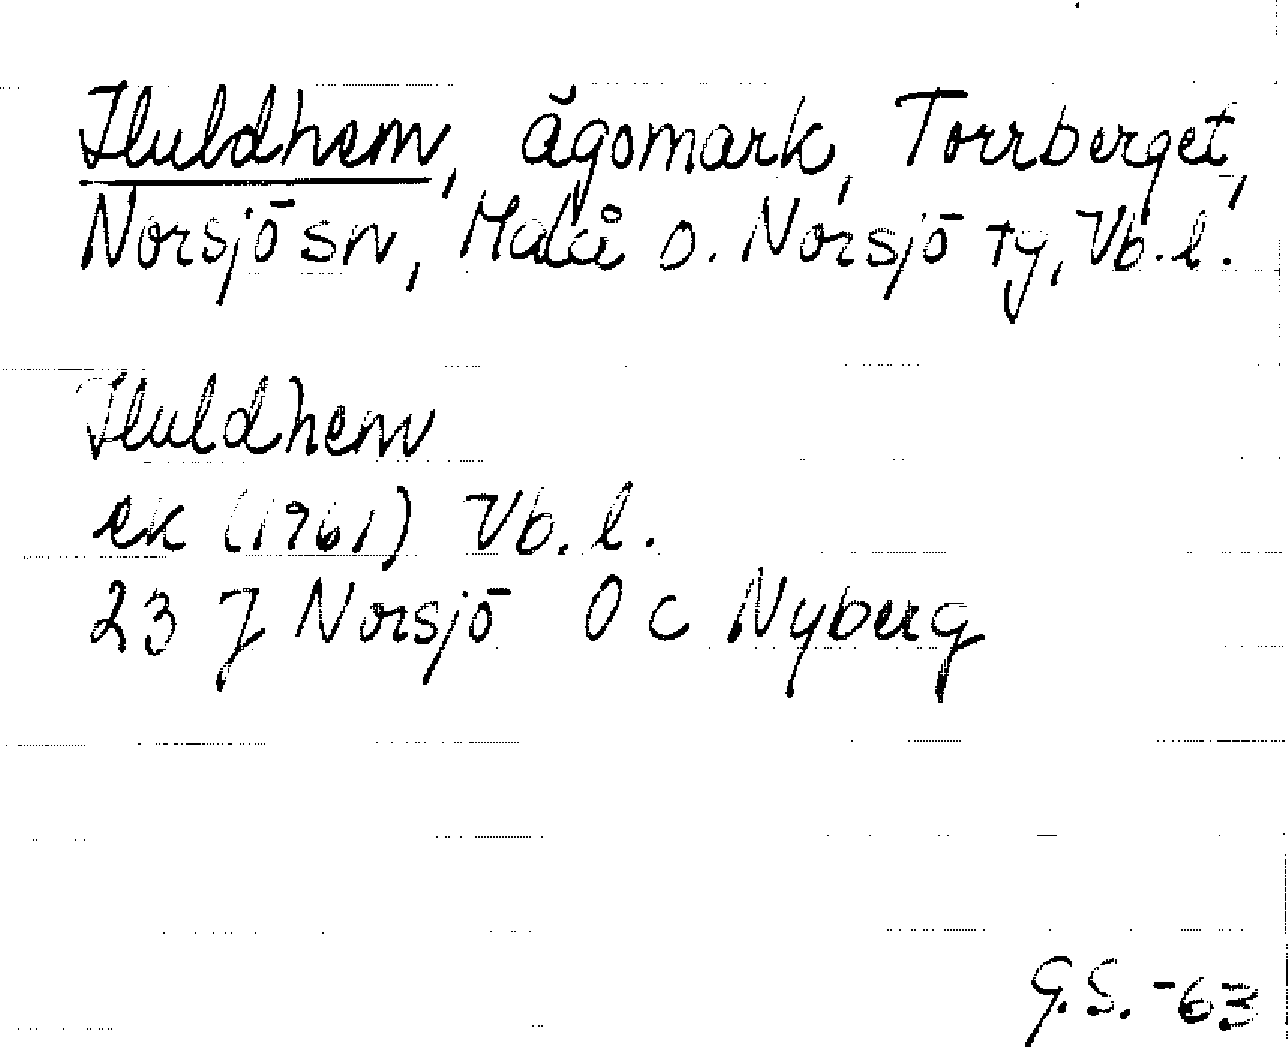 Huldhem, ägomark, Torrberget,
Norsjö sn, Malå o. Norsjö tg, Vb. l.
Huldhem
ek (1961) Vb. l.
23 J Norsjö 0 c Nyberg
G.S. -63